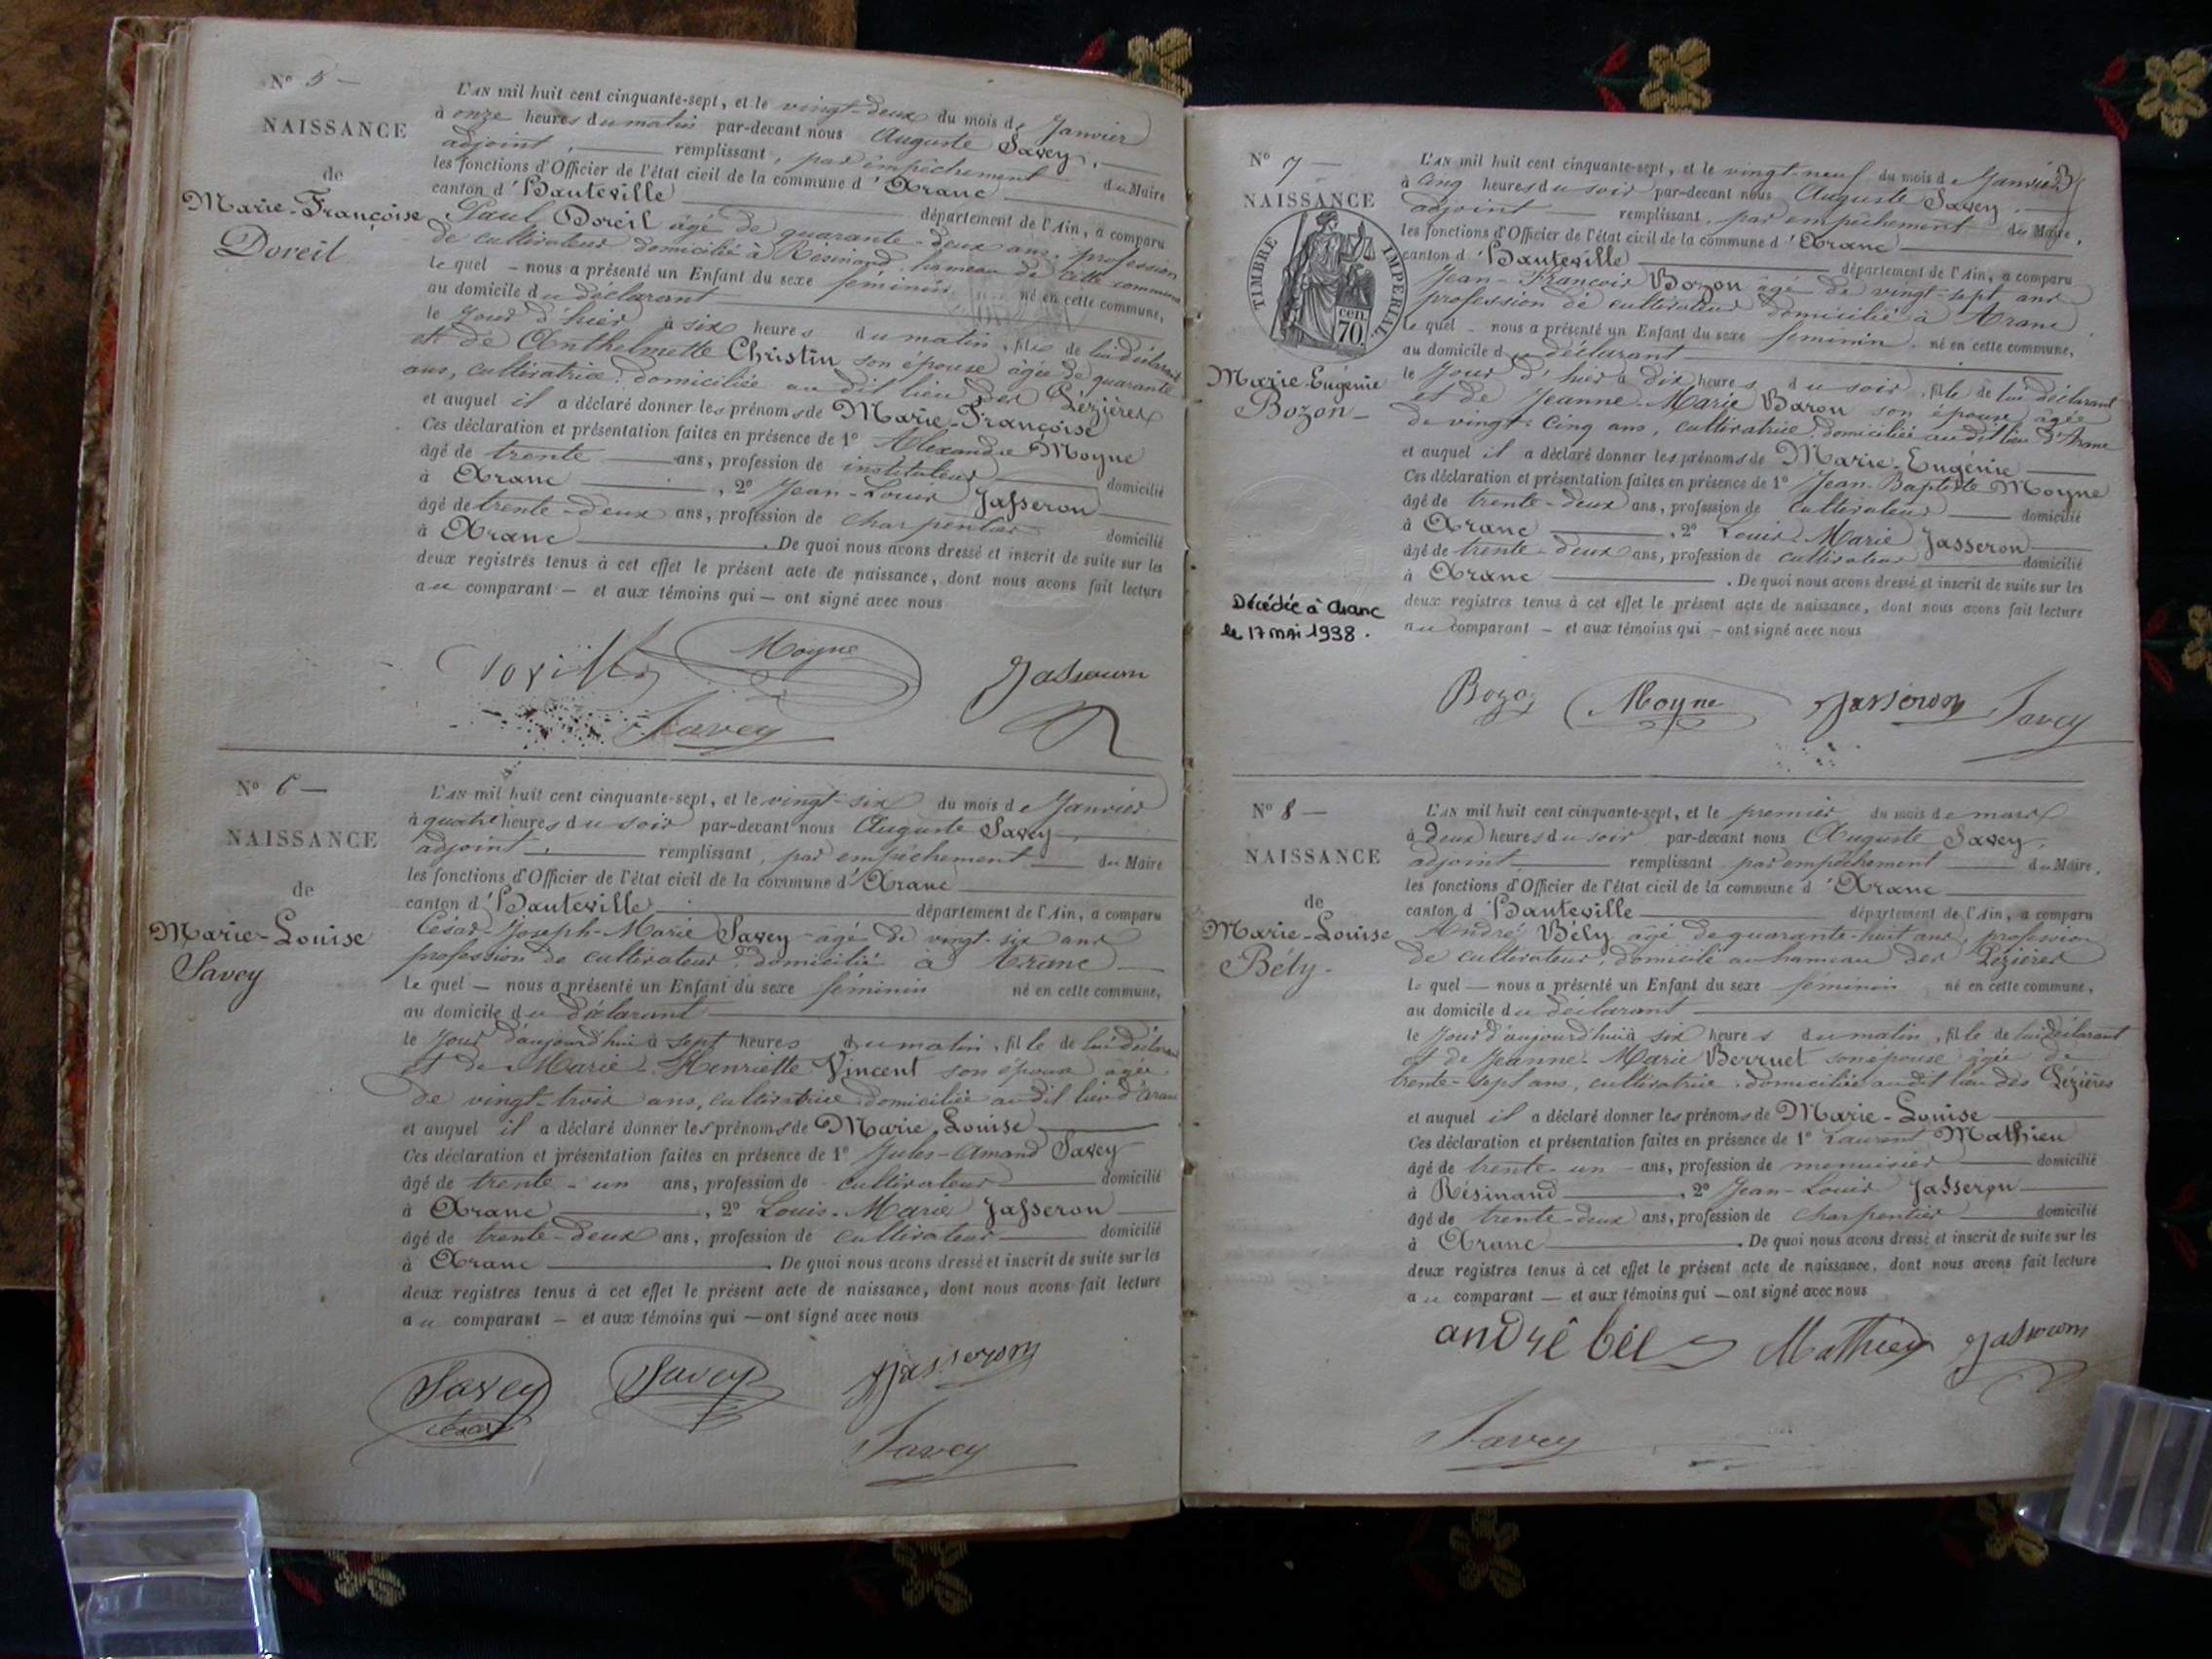 N° 5 —
NAISSANCE
de
Marie-Françoise
Doreil
L'AN mil huit cent cinquante-sept, et le vingt-deux du mois de Janvier
à onze heures du matin par-devant nous Auguste Savey,
adjoint, remplissant, par empêchement du Maire
les fonctions d'Officier de l'état civil de la commune d'Aranc
canton d'Hauteville département de l'Ain, a comparu
Paul Doreil âgé de quarante-deux ans, profession
de cultivateur domicilié à Résinand, hameau de cette commune
lequel — nous a présenté un Enfant du sexe féminin né en cette commune,
au domicile du déclarant
le jour d'hier à six heures du matin, fille de lui déclarant
et de Anthelmette Christin son épouse âgée de quarante
ans, cultivatrice, domiciliée au dit lieu des Lézières
et auquel il a déclaré donner les prénoms de Marie-Françoise
Ces déclaration et présentation faites en présence de 1° Alexandre Moyne
âgé de trente ans, profession de instituteur domicilié
à Aranc, 2° Jean-Louis Jasseron
âgé de trente-deux ans, profession de charpentier domicilié
à Aranc. De quoi nous avons dressé et inscrit de suite sur les
deux registres tenus à cet effet le présent acte de naissance, dont nous avons fait lecture
au comparant — et aux témoins qui — ont signé avec nous
Moyne Jasseron
Savey
N° 6 —
NAISSANCE
de
Marie-Louise
Savey
L'AN mil huit cent cinquante-sept, et le vingt-six du mois de Janvier
à quatre heures du soir par-devant nous Auguste Savey,
adjoint, remplissant, par empêchement du Maire
les fonctions d'Officier de l'état civil de la commune d'Aranc
canton d'Hauteville département de l'Ain, a comparu
César-Joseph-Marie Savey âgé de vingt-six ans
profession de cultivateur, domicilié à Aranc
lequel — nous a présenté un Enfant du sexe féminin né en cette commune,
au domicile du déclarant
le jour d'aujourd'hui à sept heures du matin, fille de lui déclarant
et de Marie-Henriette Vincent son épouse agée
de vingt-trois ans, cultivatrice domiciliée au dit lieu d'Aranc
et auquel il a déclaré donner les prénoms de Marie-Louise
Ces déclaration et présentation faites en présence de 1° Jules-Amand Savey
âgé de trente-un ans, profession de cultivateur domicilié
à Aranc, 2° Louis-Marie Jasseron
âgé de trente-deux ans, profession de cultivateur domicilié
à Aranc. De quoi nous avons dressé et inscrit de suite sur les
deux registres tenus à cet effet le présent acte de naissance, dont nous avons fait lecture
au comparant — et aux témoins qui — ont signé avec nous
Savey Savey Jasseron
César
Savey
N° 7 —
NAISSANCE
TIMBRE IMPERIAL
cen.
70.
Marie-Eugénie
Bozon
Décédée à Aranc
le 17 mai 1938.
L'AN mil huit cent cinquante-sept, et le vingt-neuf du mois de Janvier
à cinq heures du soir par-devant nous Auguste Savey,
adjoint — remplissant, par empêchement du Maire,
les fonctions d'Officier de l'état civil de la commune d'Aranc
canton d'Hauteville département de l'Ain, a comparu
Jean-François Bozon âgé de vingt-sept ans
profession de cultivateur domicilié à Aranc
lequel — nous a présenté un Enfant du sexe féminin né en cette commune,
au domicile du déclarant
le jour d'hier à dix heures du soir, fille de lui déclarant
et de Jeanne-Marie Baron son épouse âgée
de vingt-cinq ans, cultivatrice, domiciliée au dit lieu d'Aranc
et auquel il a déclaré donner les prénoms de Marie-Eugénie
Ces déclaration et présentation faites en présence de 1° Jean-Baptiste Moyne
âgé de trente-deux ans, profession de cultivateur domicilié
à Aranc, 2° Louis-Marie Jasseron
âgé de trente-deux ans, profession de cultivateur domicilié
à Aranc. De quoi nous avons dressé et inscrit de suite sur les
deux registres tenus à cet effet le présent acte de naissance, dont nous avons fait lecture
au comparant — et aux témoins qui — ont signé avec nous
Bozon Moyne Jasseron Savey
N° 8 —
NAISSANCE
de
Marie-Louise
Bély
L'AN mil huit cent cinquante-sept, et le premier du mois de mars
à deux heures du soir par-devant nous Auguste Savey,
adjoint remplissant par empêchement du Maire,
les fonctions d'Officier de l'état civil de la commune d'Aranc
canton d'Hauteville département de l'Ain, a comparu
André Bély âgé de quarante-huit ans, profession
de cultivateur, domicilié au hameau des Lézières
lequel — nous a présenté un Enfant du sexe féminin né en cette commune,
au domicile du déclarant
le jour d'aujourd'hui à six heures du matin, fille de lui déclarant
et de Jeanne-Marie Berruet son épouse âgée de
trente-sept ans, cultivatrice domiciliée au dit lieu des Lézières
et auquel il a déclaré donner les prénoms de Marie-Louise
Ces déclaration et présentation faites en présence de 1° Laurent Mathieu
âgé de trente-un ans, profession de menuisier domicilié
à Résinand, 2° Jean-Louis Jasseron
âgé de trente-deux ans, profession de charpentier domicilié
à Aranc. De quoi nous avons dressé et inscrit de suite sur les
deux registres tenus à cet effet le présent acte de naissance, dont nous avons fait lecture
au comparant — et aux témoins qui — ont signé avec nous
andré béli Mathieu Jasseron
Savey